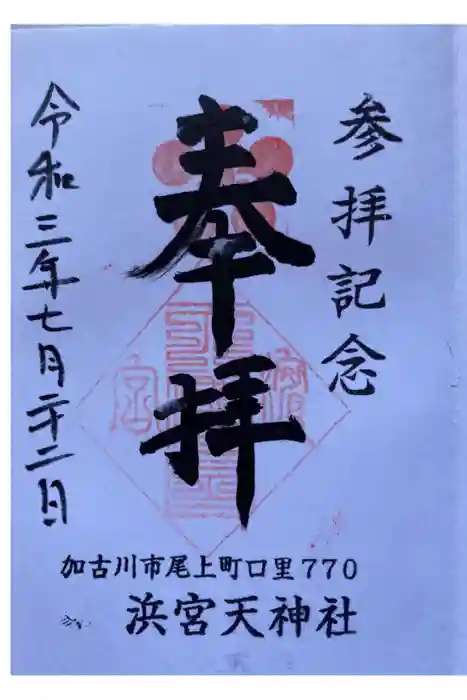 参拝記念
奉拝
令和三年七月二十二日
加古川市尾上町口里770
浜宮天神社